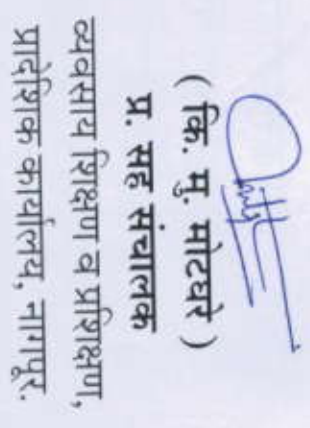 ( कि. मु. मोटघरे )
प्र. सह संचालक
व्यवसाय शिक्षण व प्रशिक्षण,
प्रादेशिक कार्यालय, नागपूर.